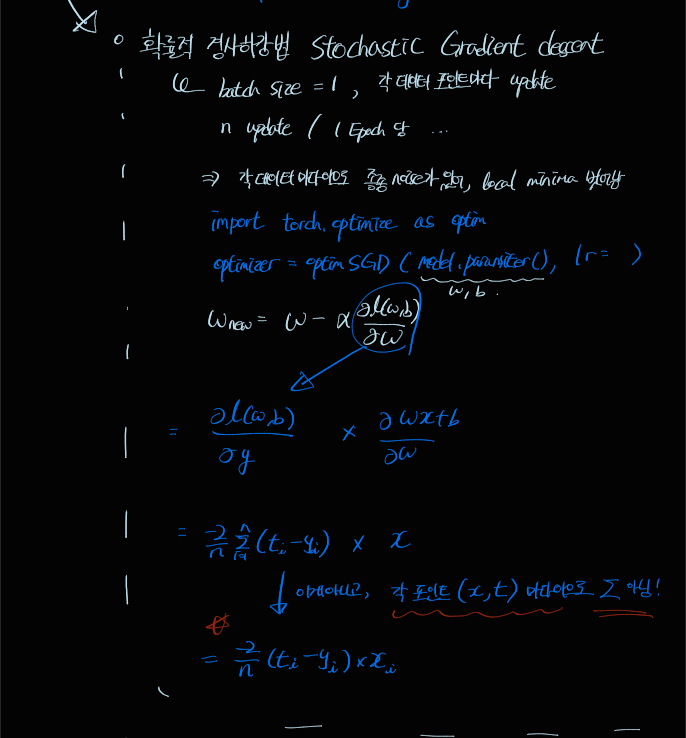 확률적 경사하강법 Stochastic Gradient descent
batch size = 1, 각 데이터 포인트마다 update
n update / 1 Epoch 당 ...
⇒ 각 데이터마다이므로 종종 noise가 있어, local minima 벗어남
import torch.optimize as optim
optimizer = optim SGD (model.paramiter(), lr = )
w, b.
Wnew = w - α ∂l(w,b)/∂w
= ∂l(w,b)/∂y × ∂wx+b/∂w
= -2/n Σ (ti-yi) × x
이게아니고, 각 포인트 (x,t) 마다이므로 Σ 아님!
= -2/n (ti-yi)×xi